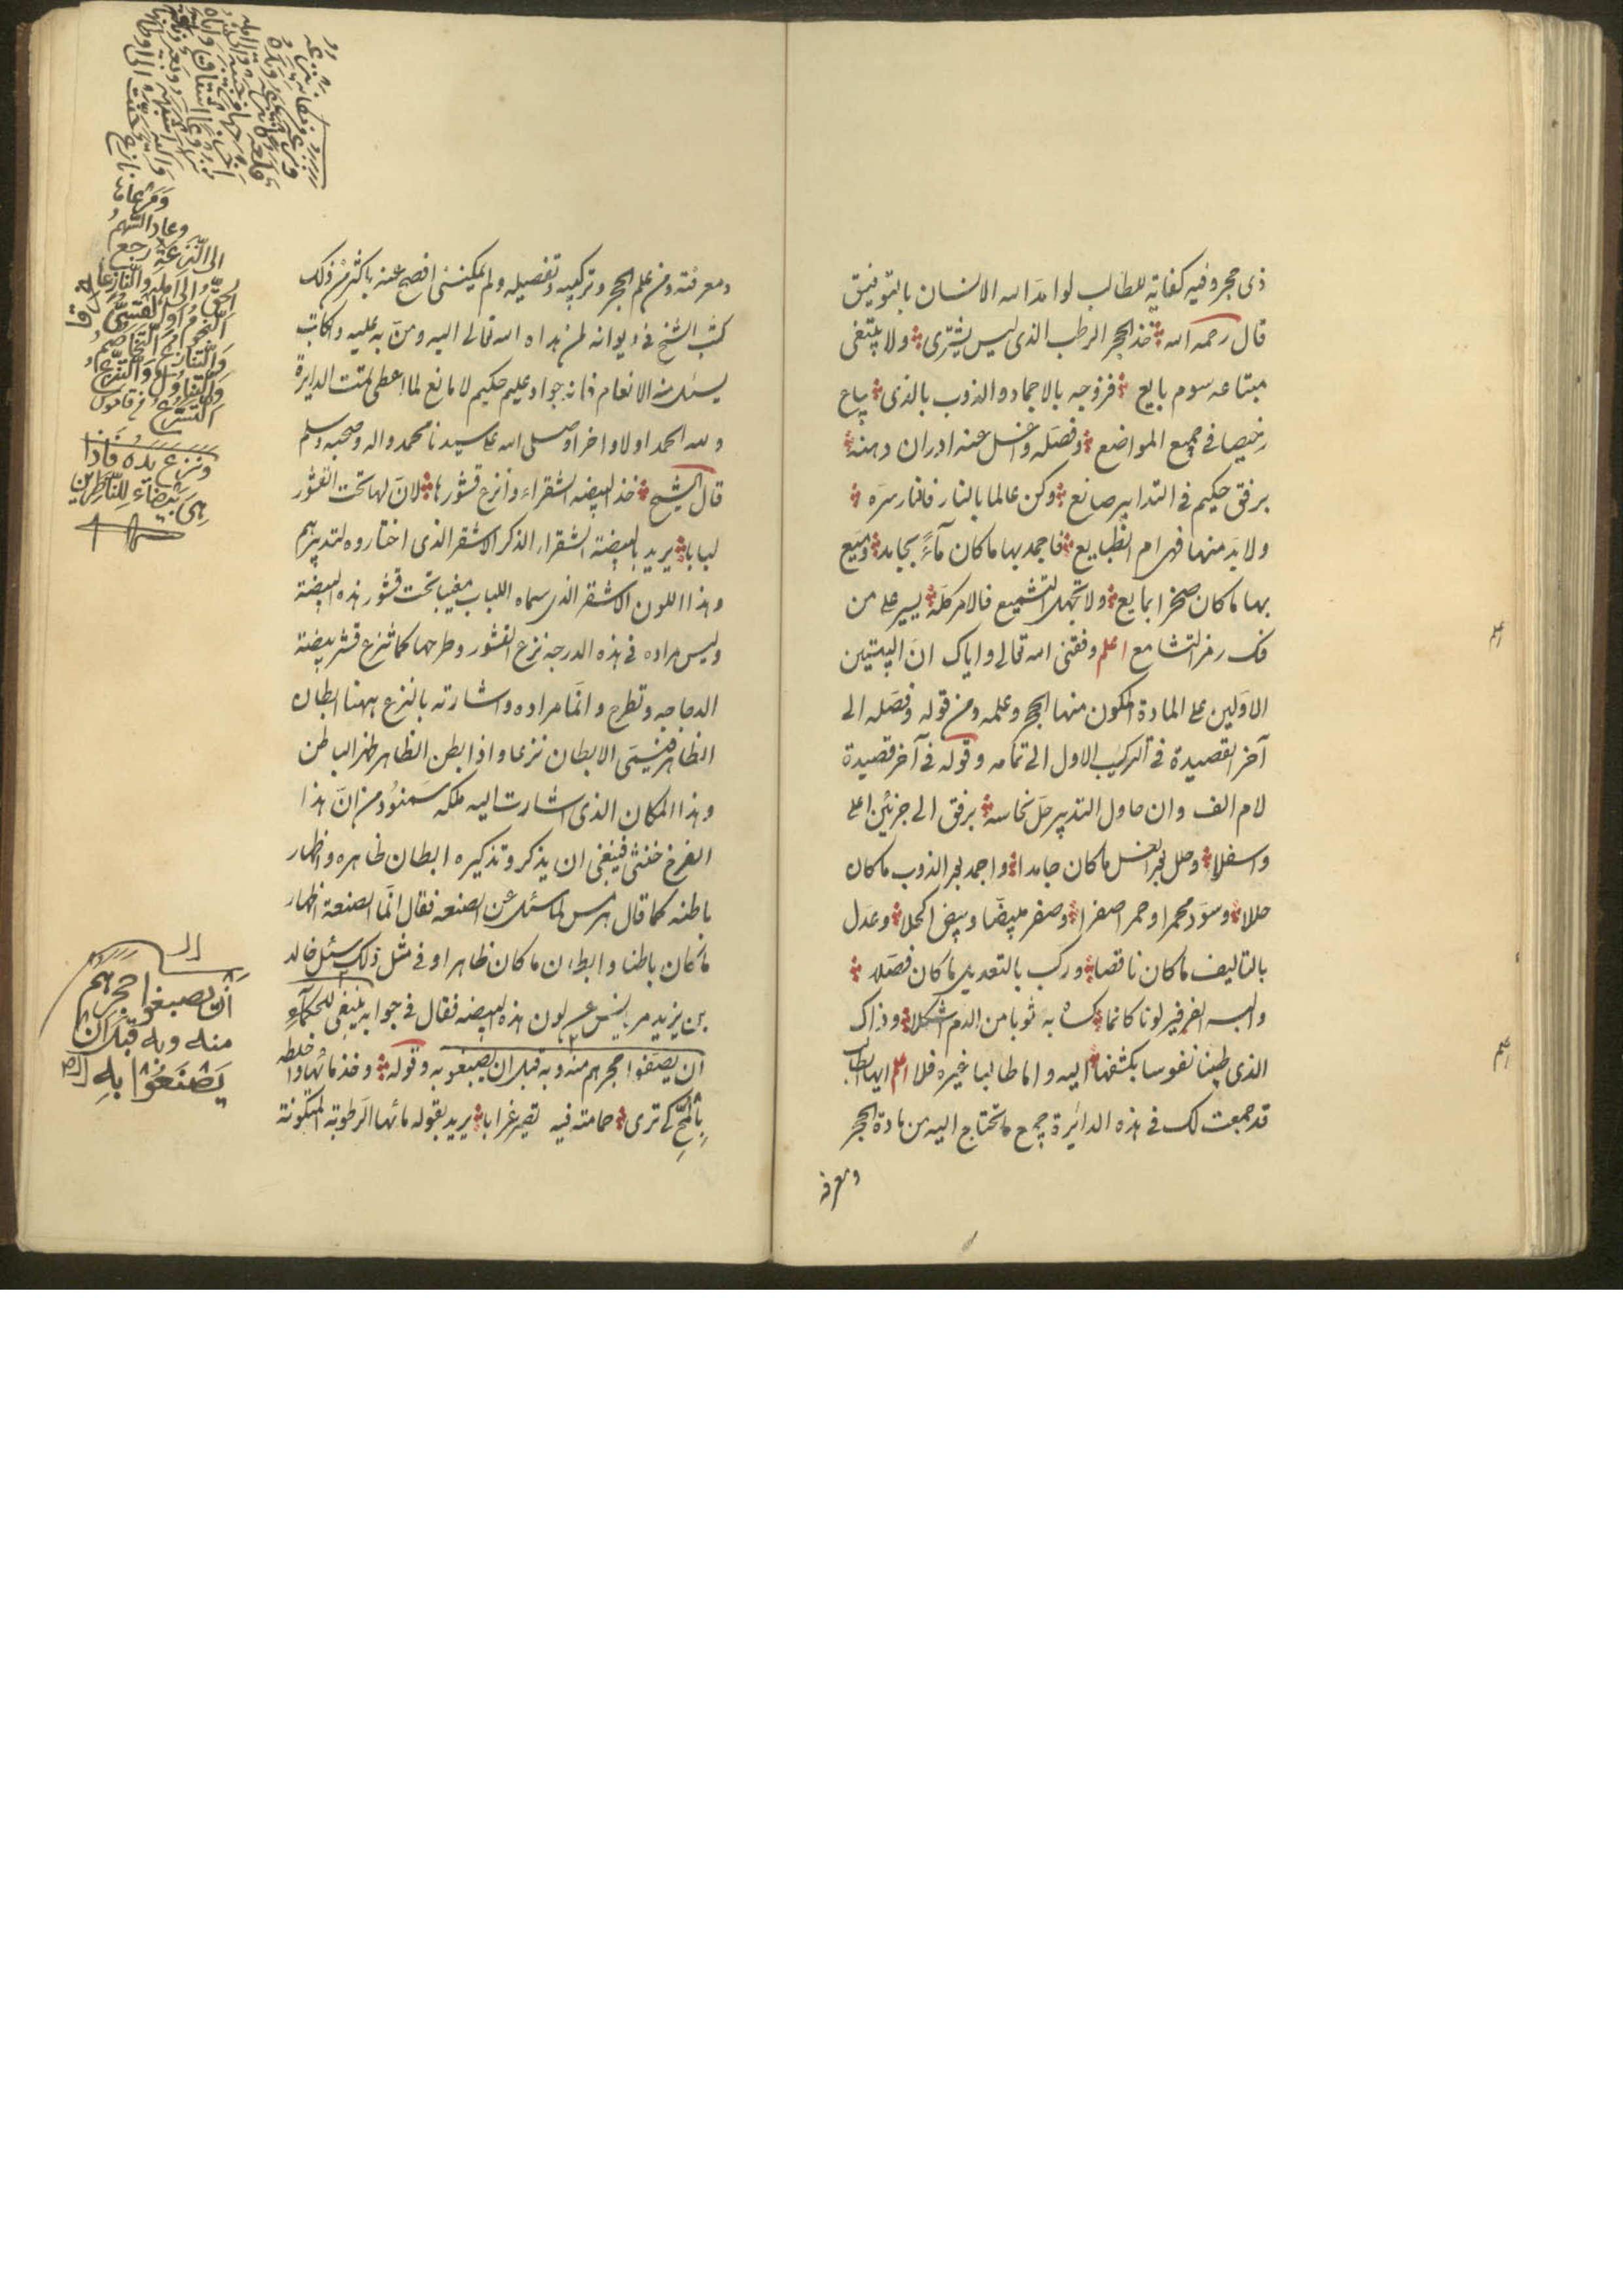 ذى حجر وفيه كفاية للطالب لو امد الله الانسان بالتوفيق
قال رحمه الله خذ الحجر الرطب الذى ليس يشترى ولا يبتغى
مبتاعه سوم بايع فزوجه بالاجماد والذوب بالذى يباع
رخيصا فى جميع المواضع وفصله واغسل عنه ادران دهنه
برفق حكيم فى التدابير صانع وكن عالما بالنار فالنار سره
ولا بد منها فهى ام الطبايع فاجمد بها ما كان مآءً بجامد وميع
بها ما كان صخرا بمايع ولا تجهل التشميع فالامر كله يسير على من
فك رمز التشامع اعلم وفقنى الله تعالى واياك ان البيتين
الاولين على المادة المكون منها الحجر وعلمه ومن قوله وفصله الى
آخر القصيدة فى التركيب الاول الى تمامه وقوله فى آخر قصيدة
لام الف وان حاول التدبير حل نحاسه برفق الى جزئين اعلى
واسفلا وحلل بحر الغسل ما كان جامدا واجمد بحر الذوب ما كان
حللا وسود محمرا وحمر اصفرا وصفر مبيضا وبيض اكحلا وعدل
بالتاليف ما كان ناقصا وركب بالتعديل ما كان فصلا
والبسه الفرفير لونا كانما كساه به ثوبا من الدم اشكلا وذاك
الذى طبنا نفوسا بكشفها اليه واما طالبا غيره فلا اعلم ايها الطالب
قد جمعت لك فى هذه الدائرة جميع ما تحتاج اليه من مادة الحجر
ومعرفة
ومعرفته ومن علم الحجر وتركيبه وتفصيله ولم يمكننى افصح عنه باكثر من ذلك
كتب الشيخ فى ديوانه لمن هداه الله تعالى اليه ومن به عليه والكاتب
يسئل منه الانعام فانه جواد عليم حكيم لا مانع لما اعطى تمت الدايرة
ولله الحمد اولا واخرا وصلى الله على سيدنا محمد واله وصحبه وسلم
قال الشيخ خذ البيضة الشقراء وانزع قشورها لان لها تحت القشور
لبابا يريد بالبيضة الشقراء الذكر الاشقر الذى اختاروه لتدبيرهم
وهذا اللون الاشقر الذى سماه اللباب مغيبا تحت قشور هذه البيضة
وليس مراده فى هذه الدرجة نزع القشور وطرحها كما تنزع قشر بيضة
الدجاجه وتطرح وانما مراده واشارته بالنزع ههنا ابطان
الظاهر فيسمى الابطان نزعا واذا بطن الظاهر ظهر الباطن
وهذا المكان الذى اشارت اليه ملكه سمنود من ان هذا
الفرخ خنثى فينبغى ان يذكر وتذكيره ابطان ظاهره واظهار
باطنه كما قال هرمس لما سئل عن الصنعه فقال انما الصنعة اظهار
ما كان باطنا وابطان ما كان ظاهرا وفى مثل ذلك سئل خالد
بن يزيد مريانس عن لون هذه البيضه فقال فى جوابه ينبغى للحكمآءِ
ان يصنفوا حجرهم منه وبه قبل ان يصبغو به وقوله وخذ مائها واخلطه
بِالمُخِّ كى ترى حمامته فيه تصير غرابا يريد بقوله مائها الرطوبة المتكونة
وَمَرْعَاهَا
وعاد السَّهمُ
الى النَّزَعَةِ رجع
الحقّ الى اهله والنّازعات
النّجوم او القِسِىُّ
والتّنازع التّخاصم
والتّناول والتّنزّع
التّسرّع من قاموس
وَنَزَعَ يَدَهُ فَاِذَا
هِىَ بَيْضَاءُ لِلنَّاظِرِينَ
أَنْ يصبغوا حجرهم
منه وبه قَبْلَ أن
يَصْنَعُوْا بِهِ